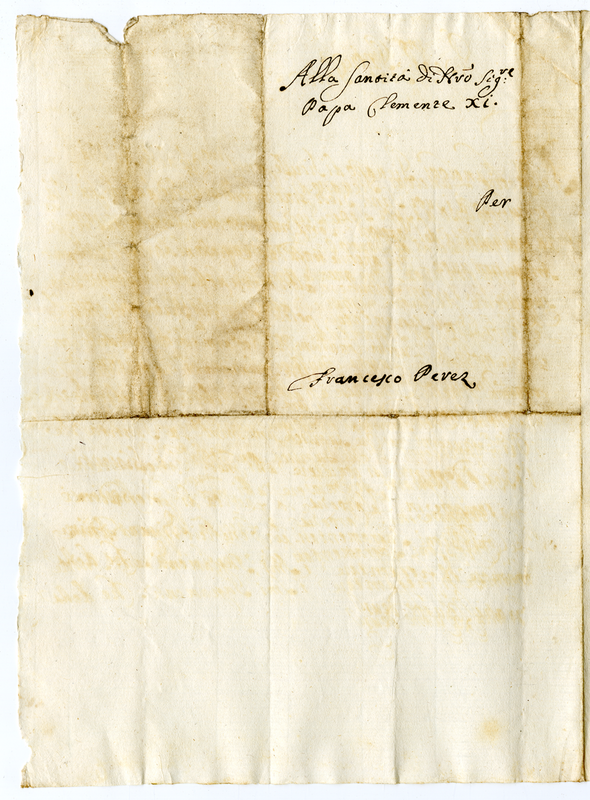 Alla Santità di Nr̃o Sig.re
Papa Clemente XI.
Per
Francesco Perez